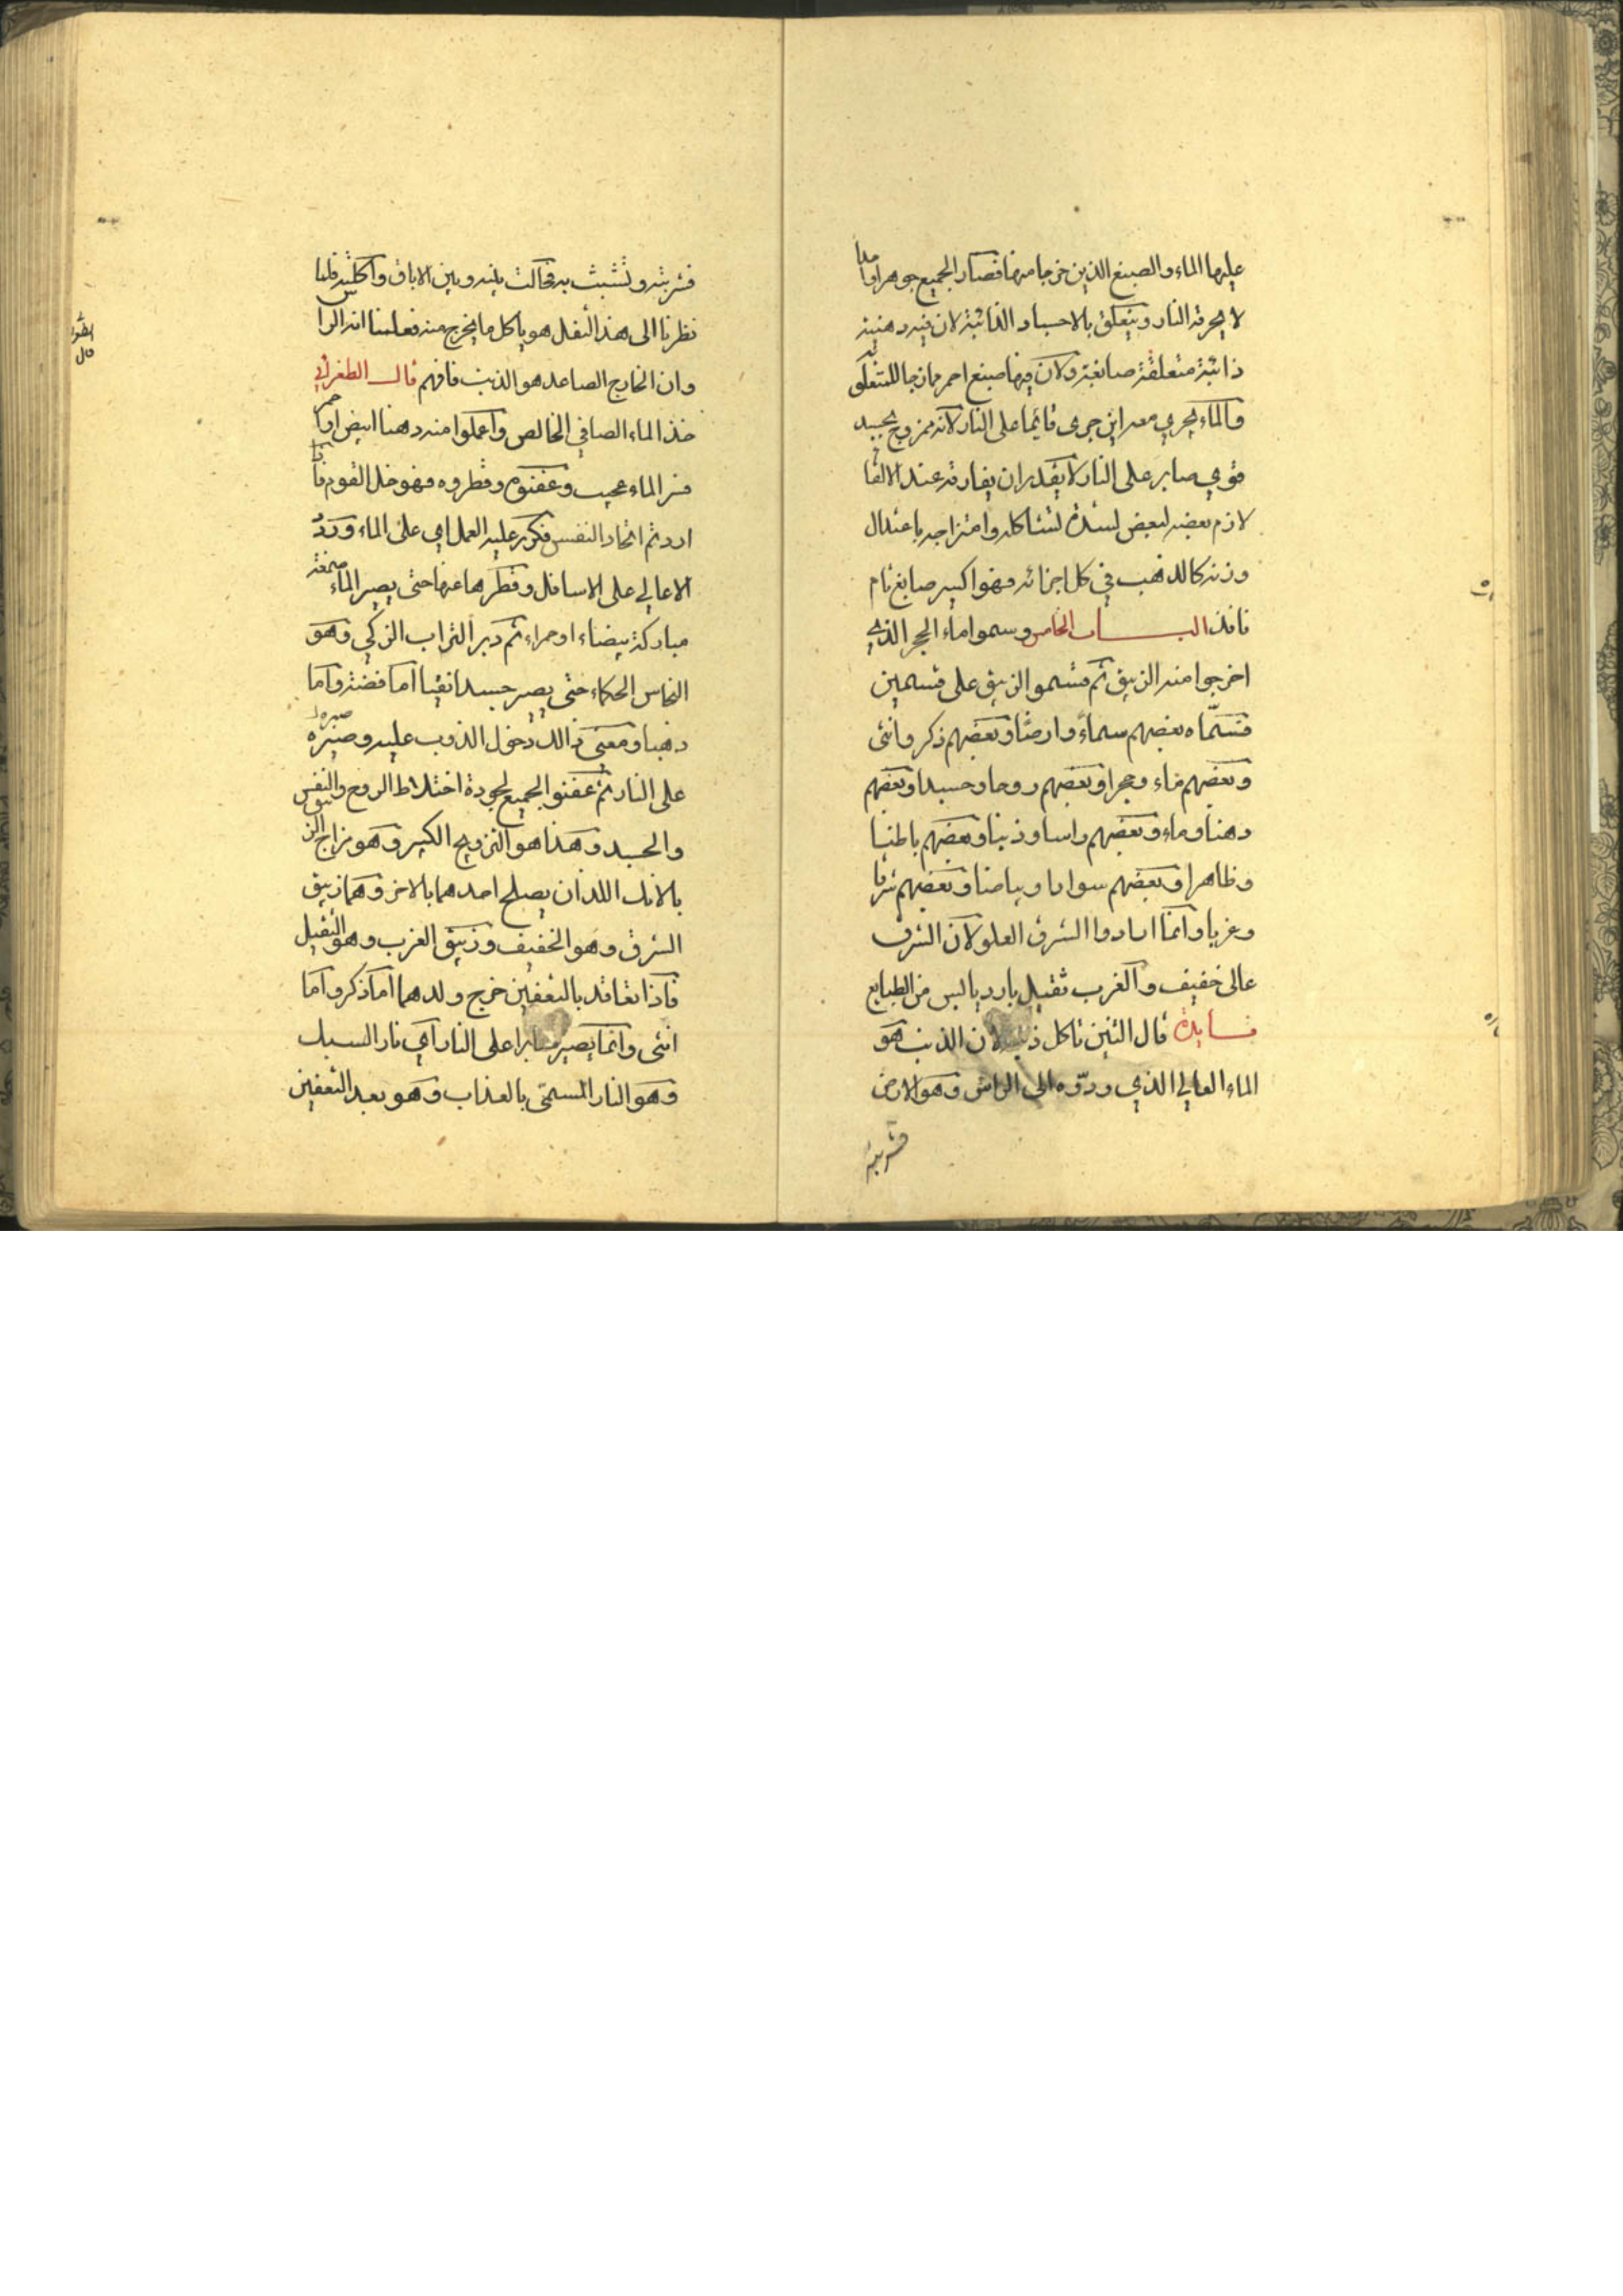 عليها الماء والصبغ الذين خرجا منها فصار الجميع جوهرا واحدا
لا يحرقه النار ويتعلق بالاجساد الذائبة لان فيه دهنية
ذائبة متعلقة صابغة ولان فيها صبغ احمر ممازجا للمتعلق به
والماء يجري معه اين جرى قايما على النار لانه ممزوج بجسد
قوي صابر على النار لا يقدر ان يفارقه عند الالقا
لازم بعضه لبعض لشدة لتشاكله وامتزاجه باعتدال
وزنه كالذهب في كل اجزائه فهو اكسير صابغ تام
نافذ الباب الخامس وسموا ماء الحجر الذي
اخرجوا منه الزيبق ثم قسموا الزيبق على قسمين
فسمّاه بعضهم سماءً وارضًا وبعضهم ذكر وانثى
وبعضهم ماء وحجرا وبعضهم روحا وجسدا وبعضهم
دهنا وماء وبعضهم راسا وذنبا وبعضهم باطنا
وظاهرا وبعضهم سوادا وبياضا وبعضهم شرقا
وغربا وانما ارادوا الشرق العلو لان الشرق
عالى خفيف والغرب ثقيل بارد يابس من الطبايع
فايدة قال التنين تاكل ذنبه لان الذنب هو
الماء العالي الذي وردّوه الى الراس وهو الارض
فشربته
فشربته وتشبث به فحالت بينه وبين الاباق واكلته فلما
نظرنا الى هذا الثفل هو ياكل ما يخرج منه فعلمنا انه الراس
وان الخارج الصاعد هو الذنب فافهم قال الطغرائي
خذ الماء الصافي الخالص واعملوا منه دهنا ابيض او احمر
من الماء عجيب وعفنوه وقطروه فهو خل القوم فاذا
اردتم اتحاد النفس فكرر عليه العمل اي على الماء وردّ
الاعالي على الاسافل وقطرها عنها حتى يصير الماء صمغة
مباركة بيضاء او حمراء ثم دبر التراب الزكي وهو
النحاس الحكماء حتى يصير جسدا نقيا اما فضة واما
ذهبا ومعنى ذالك دخول الذوب عليه وصبره
على النار ثم عفنو الجميع لجودة اختلاط الروح والنفس
والجسد وهذا هو التزويج الكبير وهو مزاج الزيبق
بالانك اللذان يصلح احدهما بالاخر وهما زيبق
الشرق وهو الخفيف وزيبق الغرب وهو الثقيل
فاذا تعاقد بالتعفين خرج ولدهما اما ذكر واما
انثى وانما يصير صابرا على النار اي نار السبك
وهو النار المسمّى بالعذاب وهو بعد التعفين